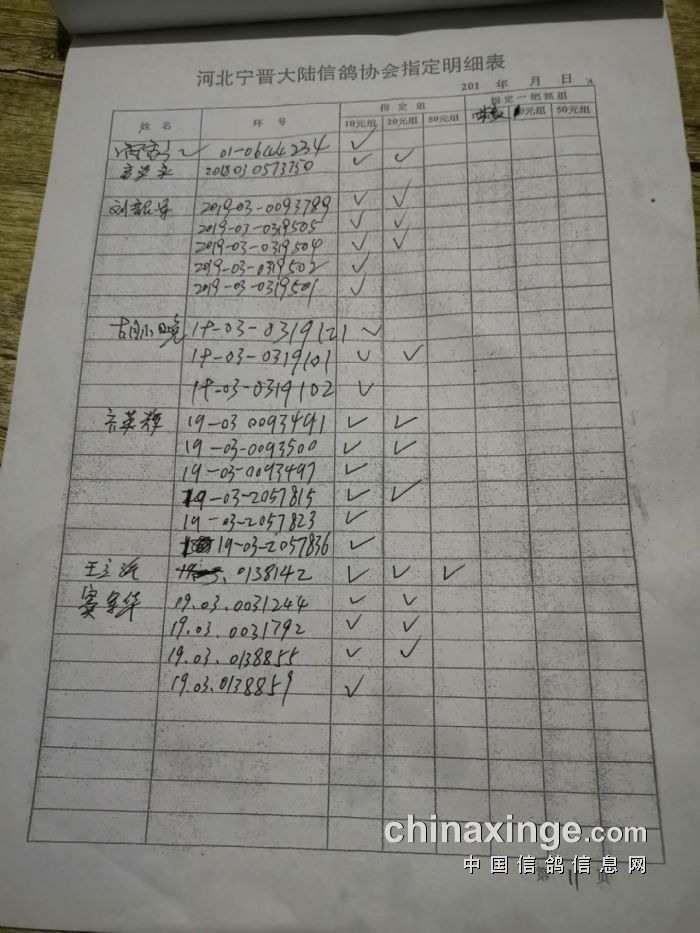 河北宁晋大陆信鸽协会指定明细表
201 年 月 日
姓名 环号 指定组 指定一把抓组
10元组 20元组 50元组 0元组 50元组
01-0644234 ✓
201803 0573750 ✓ ✓
2019-03-0093789 ✓ ✓
2019-03-0319505 ✓ ✓
2019-03-0319504 ✓ ✓
2019-03-0319502 ✓
2019-03-0319501 ✓
胡小晚 18-03-0319121 ✓
18-03-0319101 ✓ ✓
18-03-0319102 ✓
英辉 19-03 0093491 ✓ ✓
19-03-0093500 ✓ ✓
19-03-0093497 ✓
19-03-2057815 ✓ ✓
19-03-2057823 ✓
19-03-2057836 ✓
王立 0138142 ✓ ✓ ✓
窦军华 19.03.0031244 ✓ ✓
19.03.0031792 ✓ ✓
19.03.0138855 ✓ ✓
19.03.0138859 ✓
chinaxinge.com
中国信鸽信息网
第 11 页